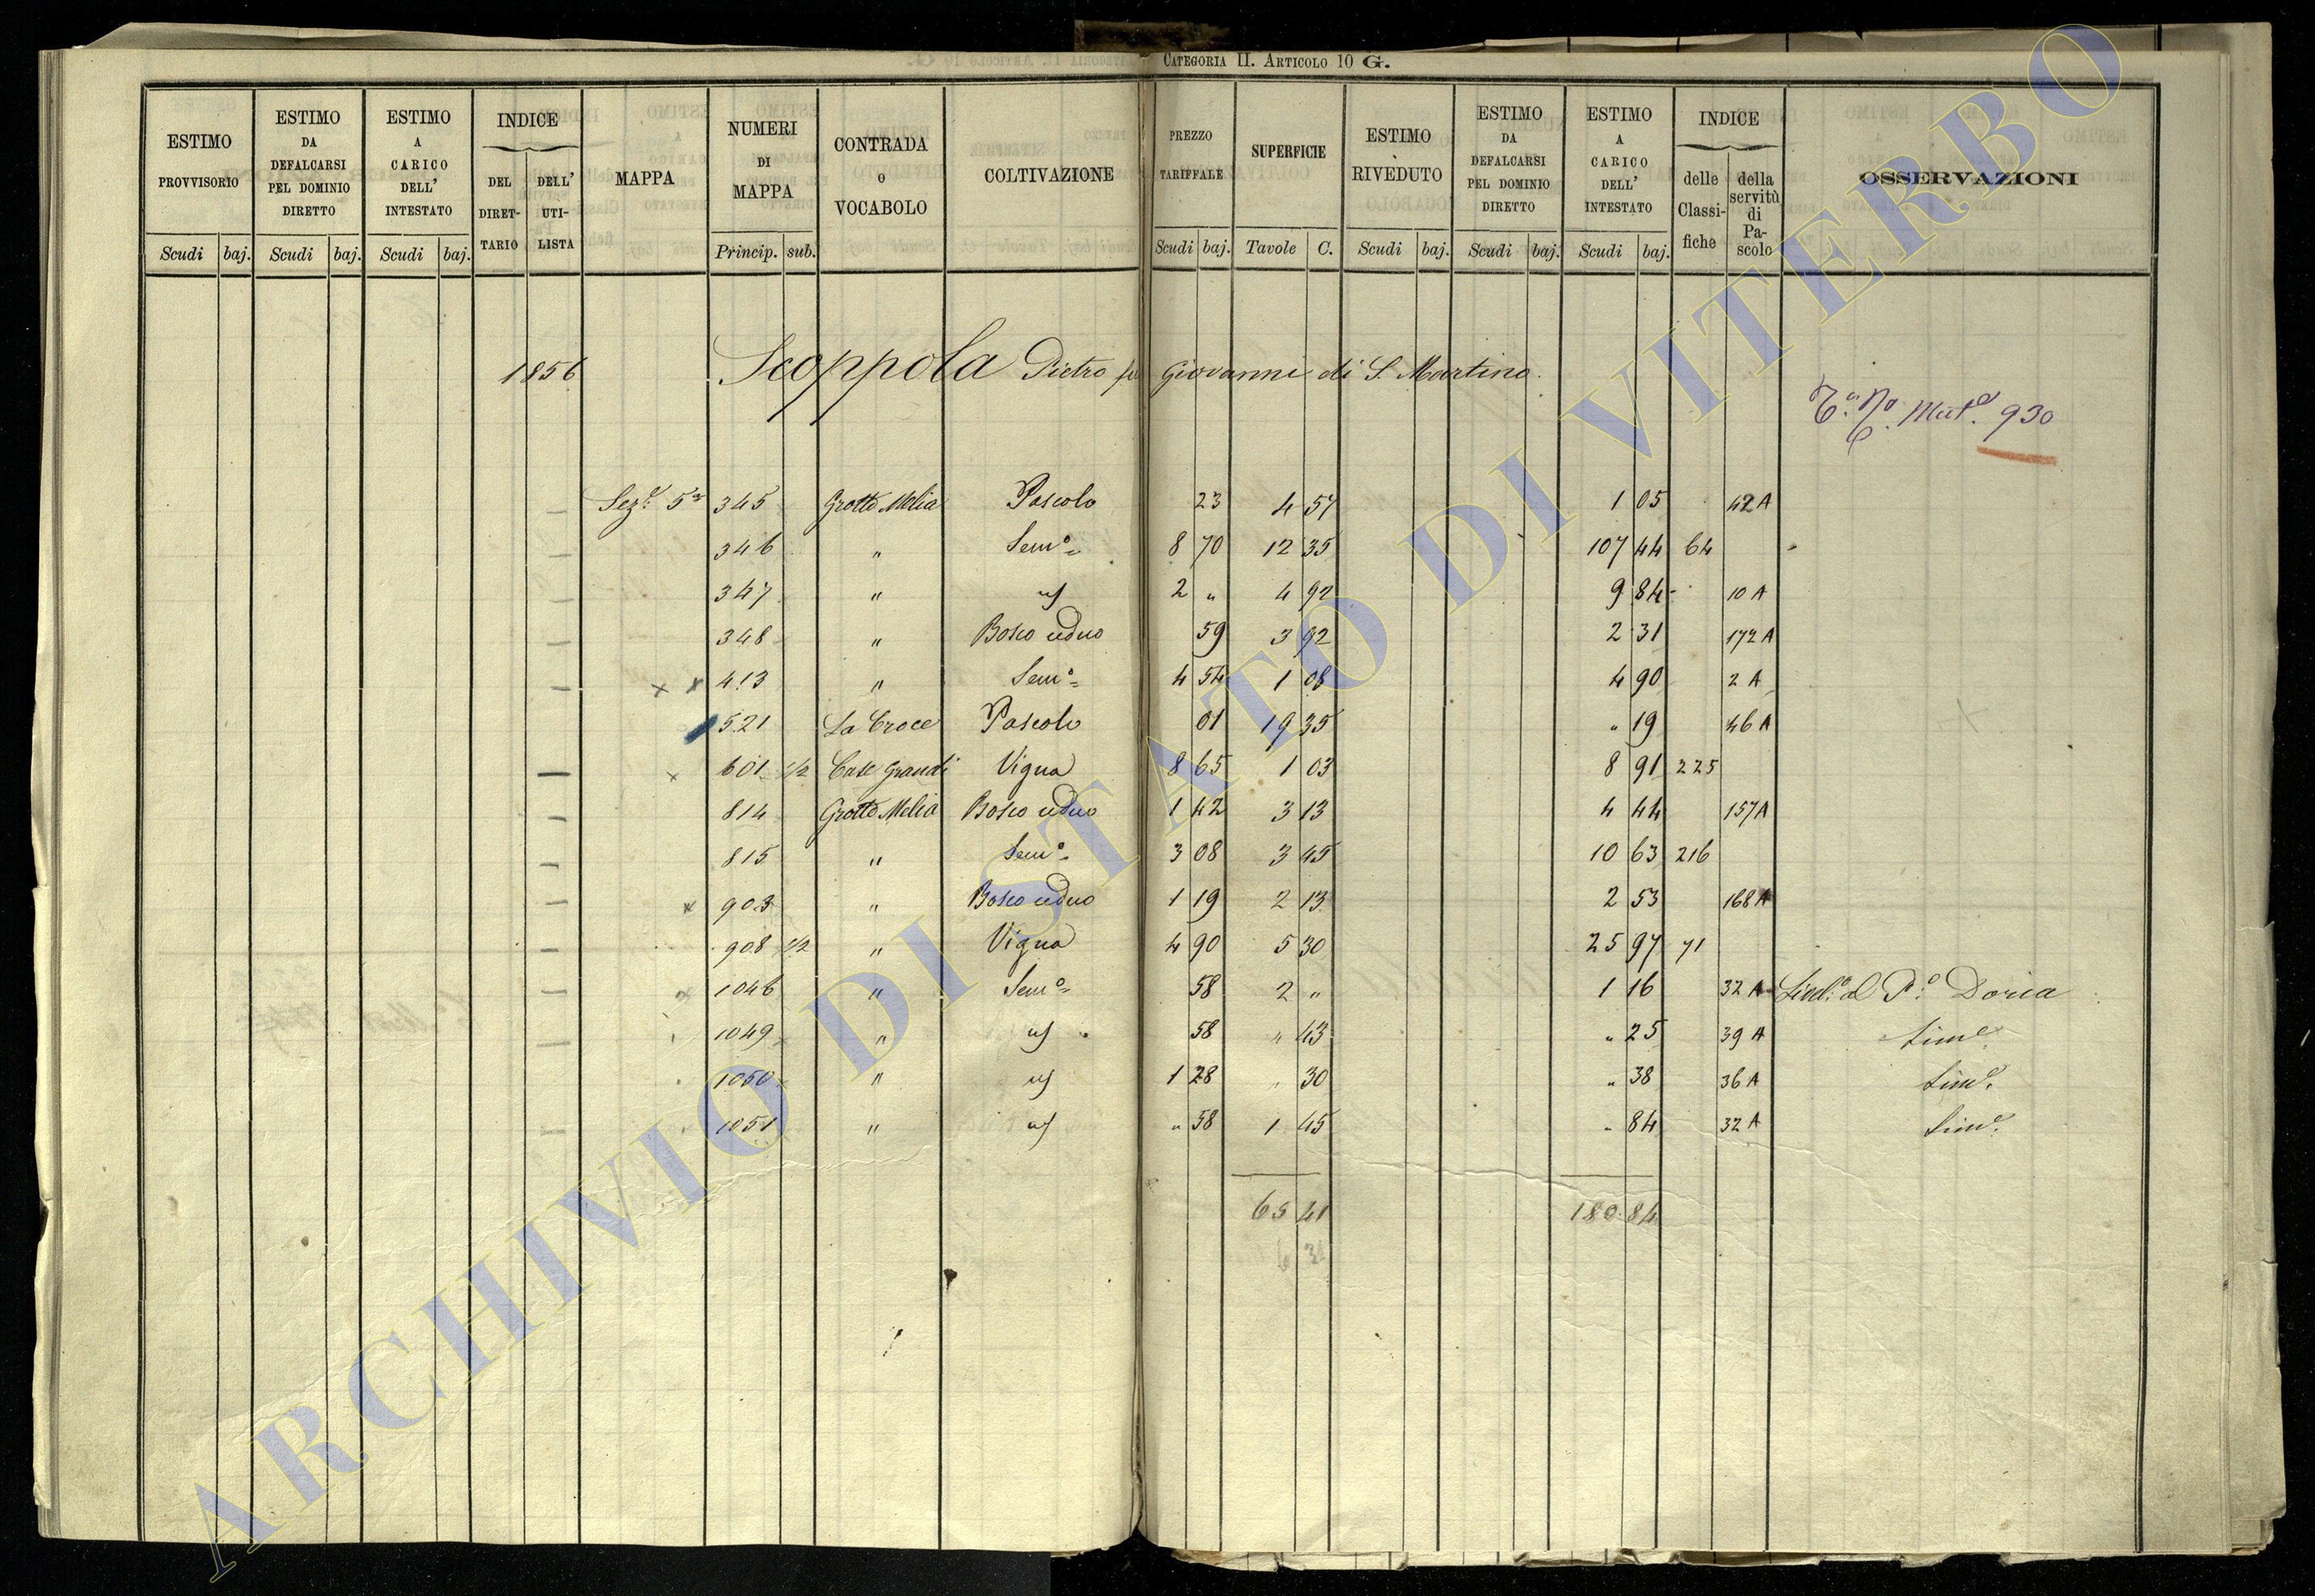 CATEGORIA II. ARTICOLO 10 G.
ESTIMO PROVVISORIO Scudi baj.
ESTIMO DA DEFALCARSI PEL DOMINIO DIRETTO Scudi baj.
ESTIMO A CARICO DELL' INTESTATO Scudi baj.
INDICE DEL DIRET-TARIO DELL' UTI-LISTA
MAPPA
NUMERI DI MAPPA Princip. sub.
CONTRADA O VOCABOLO
COLTIVAZIONE
PREZZO TARIFFALE Scudi baj.
SUPERFICIE Tavole C.
ESTIMO RIVEDUTO Scudi baj.
ESTIMO DA DEFALCARSI PEL DOMINIO DIRETTO Scudi baj.
ESTIMO A CARICO DELL' INTESTATO Scudi baj.
INDICE delle Classi-fiche della servitù di Pa-scolo
OSSERVAZIONI
1856 Scoppola Pietro fu Giovanni di S. Martino
Mut.e 930
Sez.e 5a 345 Grotta Melia Pascolo 23 4 57 1 05 42 A
346 " Sem.o 8 70 12 35 107 44 64
347 " 2 " 4 92 9 84 10 A
348 " Bosco ceduo 59 3 92 2 31 172 A
x x 413 " Sem.o 4 54 1 08 4 90 2 A
521 La Croce Pascolo 01 19 35 " 19 46 A
x 601 1/2 Case Grandi Vigna 8 65 1 03 8 91 225
814 Grotta Melia Bosco ceduo 1 42 3 13 4 44 157 A
815 " Sem.o 3 08 3 45 10 63 216
x 903 " Bosco ceduo 1 19 2 13 2 53 168 A
908 1/2 " Vigna 4 90 5 30 25 97 71
x 1046 " Sem.o 58 2 " 1 16 32 A al P.e Doria
1049 " 58 " 43 " 25 39 A Sim.e
1050 " 1 28 " 30 " 38 36 A Sim.e
1051 " " 58 1 45 " 84 32 A Sim.e
65 41 180 84
ARCHIVIO DI STATO DI VITERBO